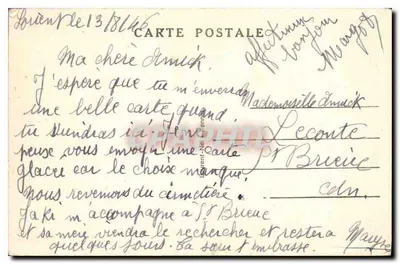 Lorient le 13/8/46
CARTE POSTALE
affectueux
bonjour
Margot
Ma chère Annick.
J'espère que tu m'enverras
une belle carte quand
tu viendras ici. Je ne
peux vous envoyer une carte
glacée car le choix manque.
nous revenons du cimetière.
Jaki m'accompagne à St Brieuc
et sa mère viendra le rechercher et restera
quelques jours. Ta sœur t'embrasse.
Mademoiselle Annick
Leconte
St Brieuc
Cdn.